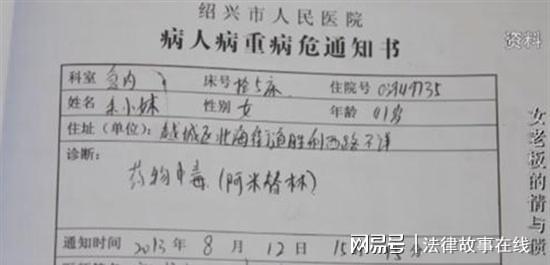 绍兴市人民医院
资料
病人病重病危通知书
科室 急内 床号 抢5床 住院号
姓名 朱小妹 性别 女 年龄 41岁
住址（单位）：越城区北海街道胜利西路不详
诊断：
药物中毒（阿米替林）
通知时间 2013 年 8 月 12 日 15
女老板的情与债
网易号 | 法律故事在线